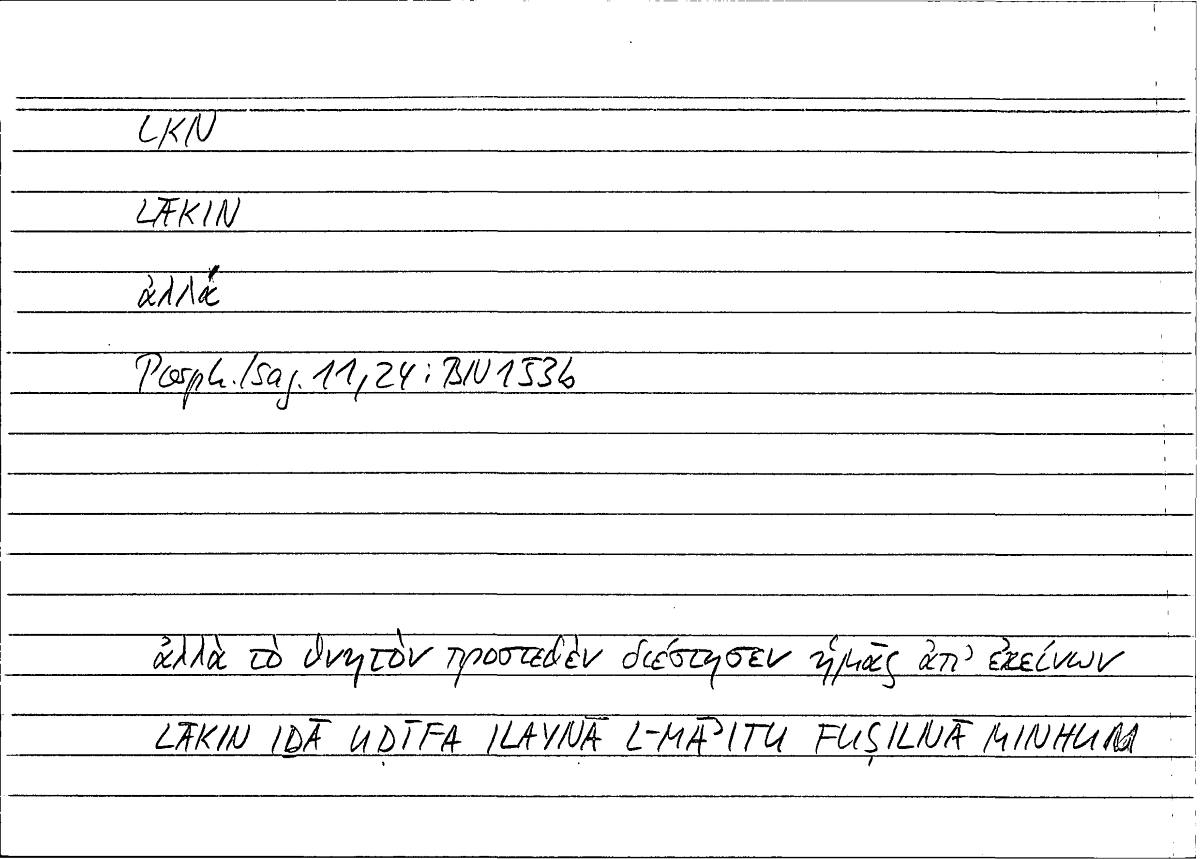 LKN
LĀKIN
ἀλλά
Porph. Isag. 11,24 : BN 153b
ἀλλὰ τὸ θνητὸν προστεθὲν διέστησεν ἡμᾶς ἀπ' ἐκείνων
LĀKIN IḎĀ UḌĪFA ILAYNĀ L-MĀʾITU FUṢILNĀ MINHUM